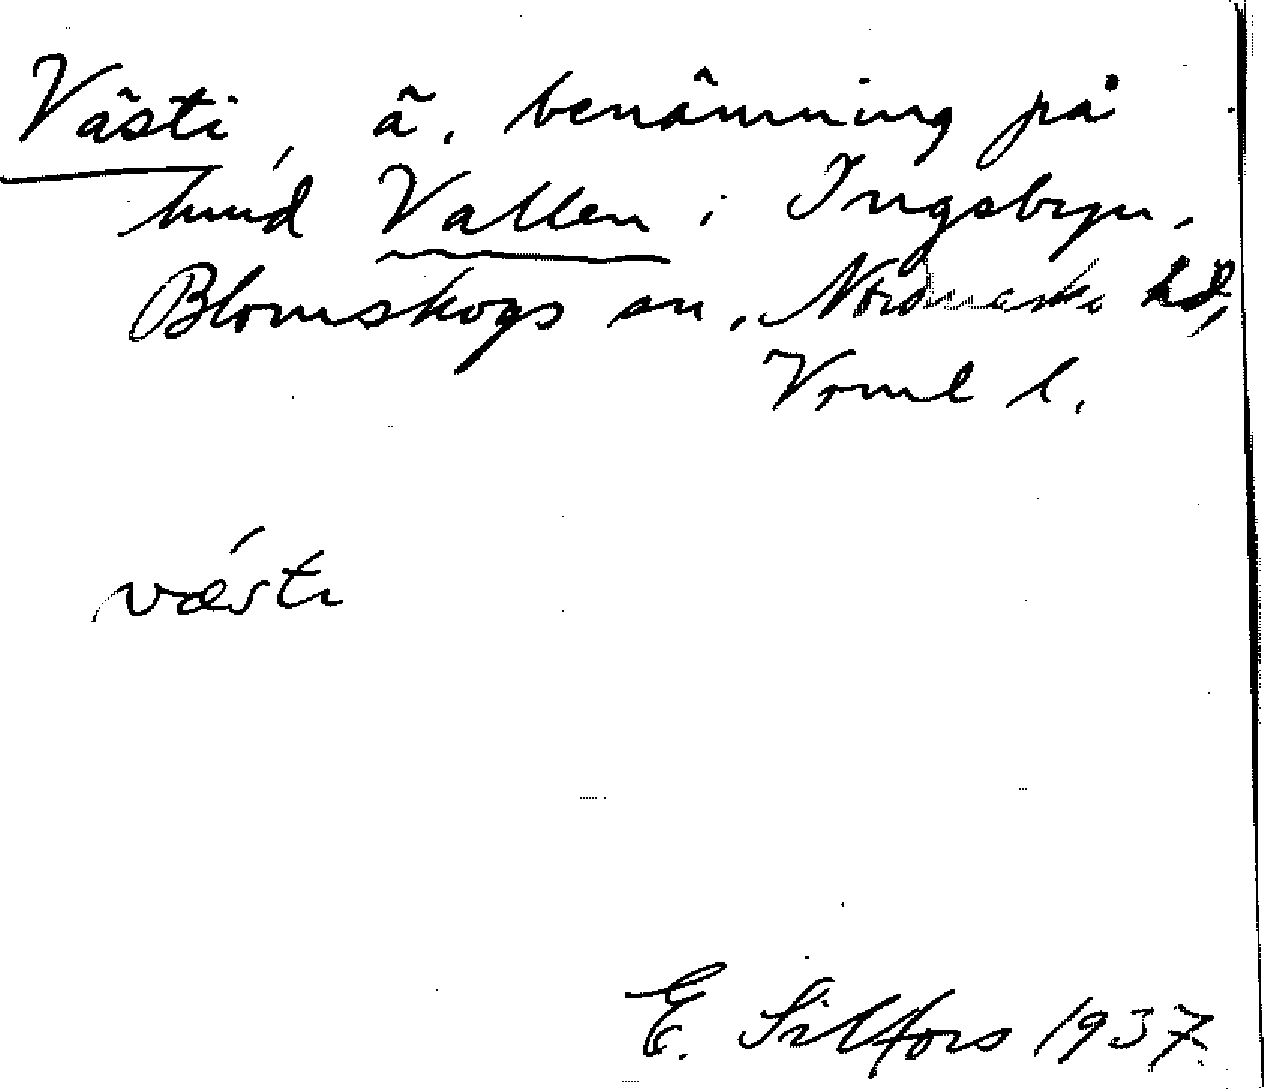 Västi, ä. benämning på
hmd Vallen i Ingsbyn,
Blomskogs sn, Nordmarks hd,
Vrml l.
væ´sti
E. Silfors 1937.